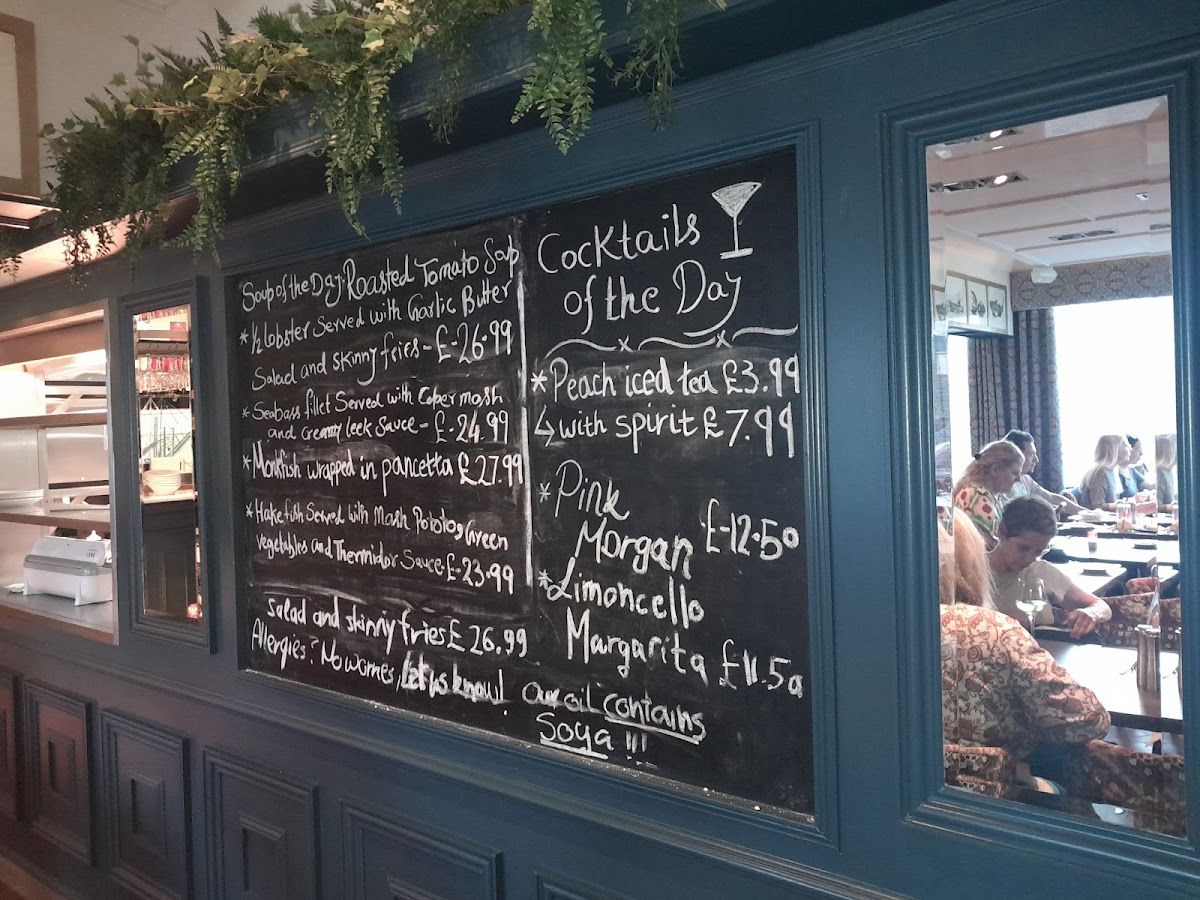 Soup of the Day. Roasted Tomato Soup
* ½ lobster Served with Garlic Butter
Salad and skinny fries - £-26.99
* Seabass fillet Served with Caper mash
and Creamy leek Sauce - £-24.99
* Monkfish wrapped in pancetta £27.99
* Hake fish Served with Mash Potato, Green
vegetables and Thermidor Sauce. £-23.99
Salad and skinny fries £ 26.99
Allergies? No worries, let us know!
Cocktails
of the Day
* Peach iced tea £3.99
↳ with spirit £7.99
* Pink
Morgan £-12.50
* Limoncello
Margarita £11.50
Our oil contains
Soya !!!